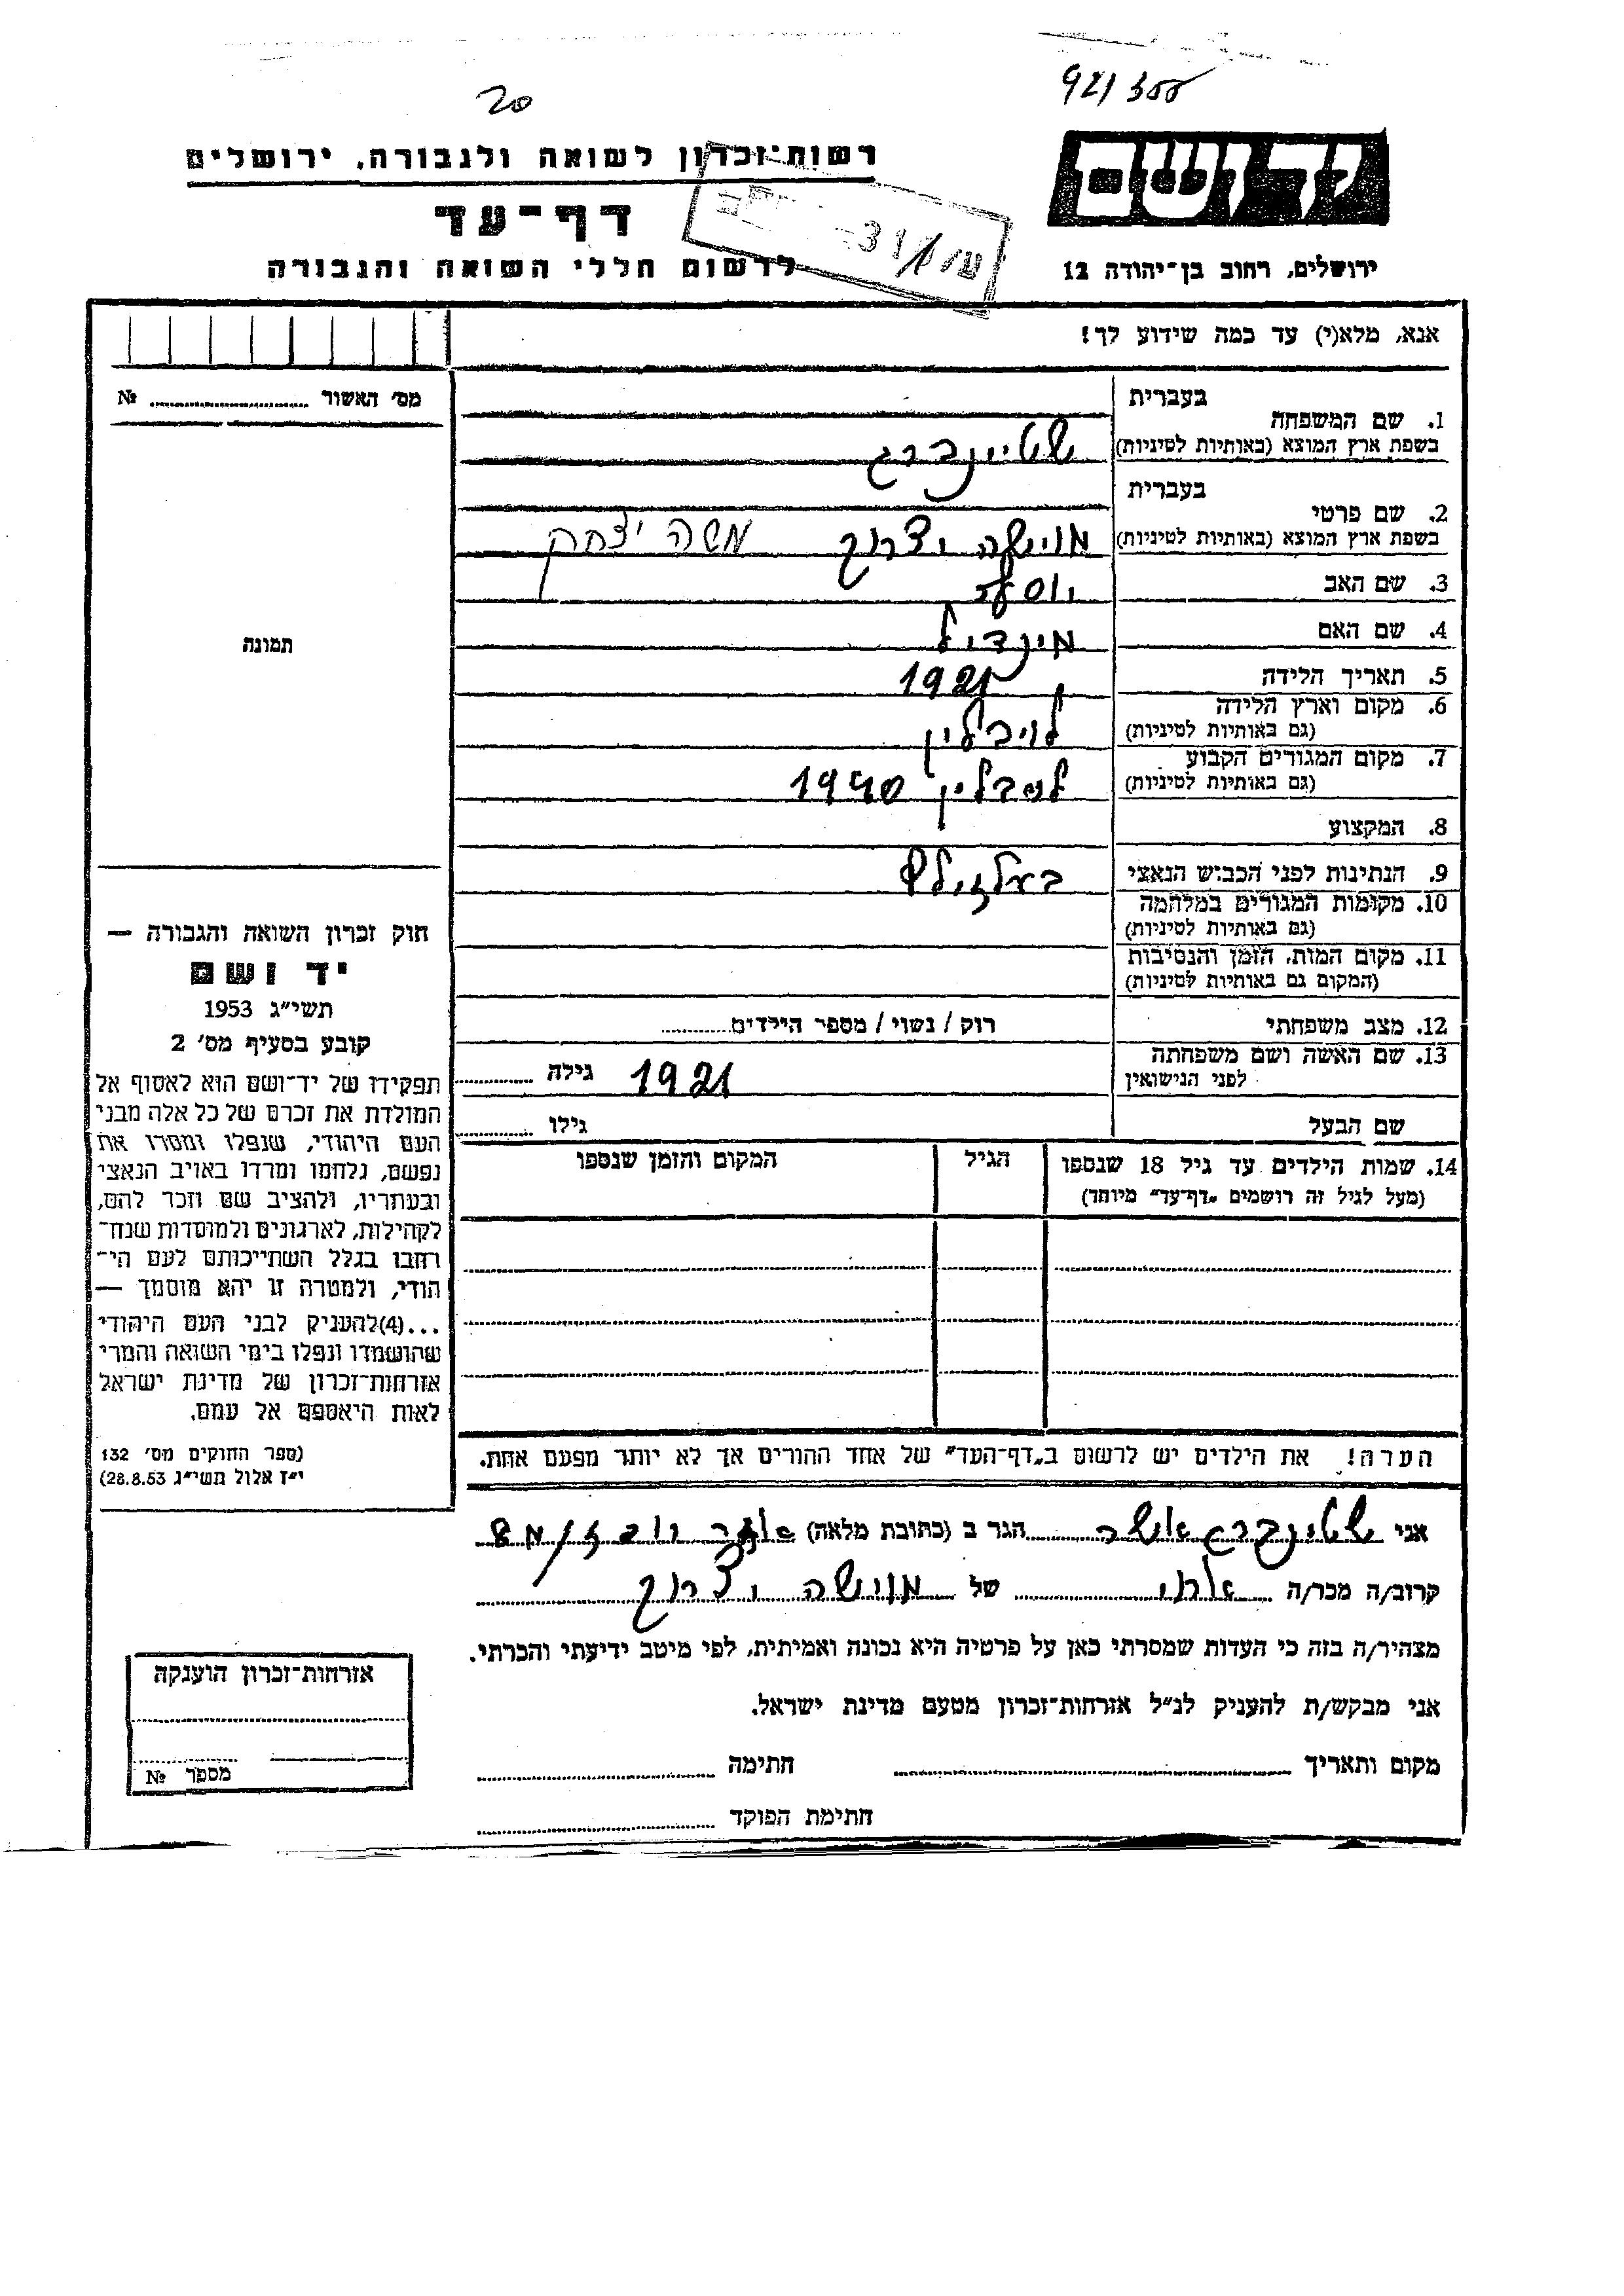 921 300
20
יד ושם
רשות־זכרון לשואה ולגבורה, ירושלים
דף־עד
לרשום חללי השואה והגבורה
ירושלים, רחוב בן־יהודה 12
אנא, מלא(י) עד כמה שידוע לך!
מס׳ האשור № 
1. שם המשפחה
בעברית
בשפת ארץ המוצא (באותיות לטיניות)
שטיינברג
2. שם פרטי
בעברית
בשפת ארץ המוצא (באותיות לטיניות)
מוישה יצרוק משה יצחק
3. שם האב
4. שם האם מינדיל
5. תאריך הלידה 1921
6. מקום וארץ הלידה
(גם באותיות לטיניות)
לויבלין
7. מקום המגורים הקבוע
(גם באותיות לטיניות)
לובלין 1940
8. המקצוע
9. הנתינות לפני הכביש הנאצי
10. מקומות המגורים במלחמה
(גם באותיות לטיניות)
11. מקום המות, הזמן והנסיבות
(המקום גם באותיות לטיניות)
12. מצב משפחתי רוק / נשוי / מספר הילדים
13. שם האשה ושם משפחתה
לפני הנישואין
1921 גילה
שם הבעל גילו
14. שמות הילדים עד גיל 18 שנספו הגיל המקום והזמן שנספו
(מעל לגיל זה רושמים „דף־עד״ מיוחד)
הערה! את הילדים יש לרשום ב„דף־העד״ של אחד ההורים אך לא יותר מפעם אחת.
תמונה
חוק זכרון השואה והגבורה —
יד ושם
תשי״ג 1953
קובע בסעיף מס׳ 2
תפקידו של יד־ושם הוא לאסוף אל
המולדת את זכרם של כל אלה מבני
העם היהודי, שנפלו ומסרו את
נפשם, נלחמו ומרדו באויב הנאצי
ובעוזריו, ולהציב שם וזכר להם,
לקהילות, לארגונים ולמוסדות שנח־
רחבו בגלל השתייכותם לעם הי־
הודי, ולמטרה זו יהא מוסמך —
...(4)להעניק לבני העם היהודי
שהושמדו ונפלו בימי השואה והמרי
אזרחות־זכרון של מדינת ישראל
לאות היאספם אל עמם.
(ספר החוקים מס׳ 132
י״ז אלול תשי״ג 28.8.53)
אני שטינברג הגר ב (כתובת מלאה)
קרוב/ה מכר/ה של מוישה יצרוק
מצהיר/ה בזה כי העדות שמסרתי כאן על פרטיה היא נכונה ואמיתית, לפי מיטב ידיעתי והכרתי.
אני מבקש/ת להעניק לנ״ל אזרחות־זכרון מטעם מדינת ישראל.
מקום ותאריך חתימה
חתימת הפוקד
אזרחות־זכרון הוענקה
מספר №